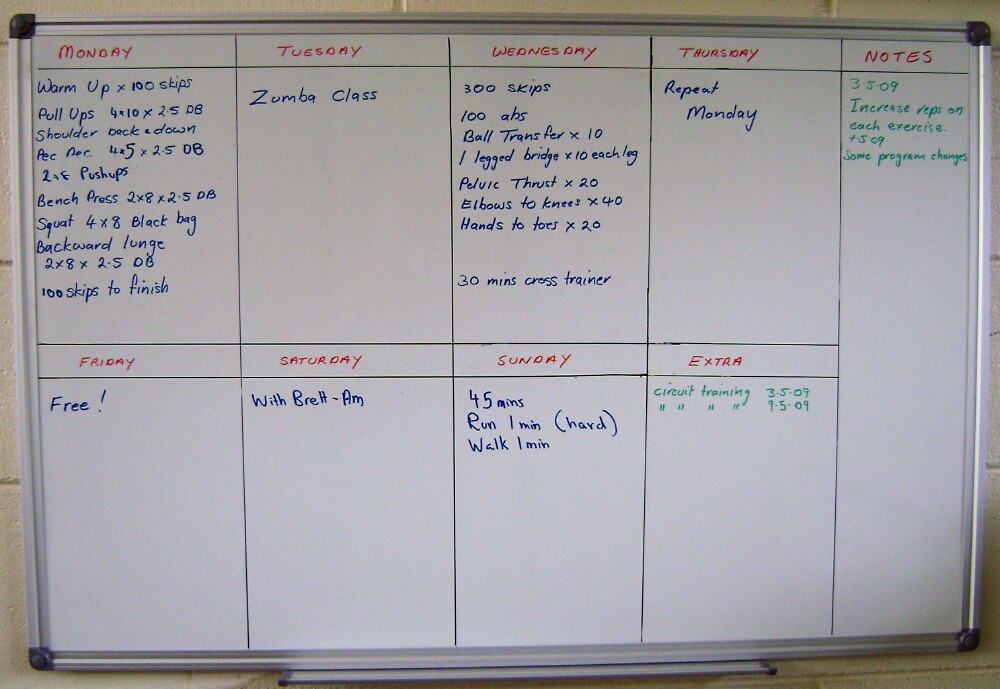 MONDAY
Warm Up x 100 skips
Pull Ups 4x10 x 2.5 DB
Shoulder back & down
Pec Dec 4x5 x 2.5 DB
2x8 Pushups
Bench Press 2x8x2.5 DB
Squat 4x8 Black bag
Backward lunge
2x8 x 2.5 DB
100 skips to finish
TUESDAY
Zumba Class
WEDNESDAY
300 skips
100 abs
Ball Transfer x 10
1 legged bridge x 10 each leg
Pelvic Thrust x 20
Elbows to knees x 40
Hands to toes x 20
30 mins cross trainer
THURSDAY
Repeat
Monday
NOTES
3.5.09
Increase reps on
each exercise.
4.5.09
Some program changes
FRIDAY
Free!
SATURDAY
With Brett-Am
SUNDAY
45 mins
Run 1 min (hard)
Walk 1 min
EXTRA
circuit training 3.5.09
" " " " 9.5.09